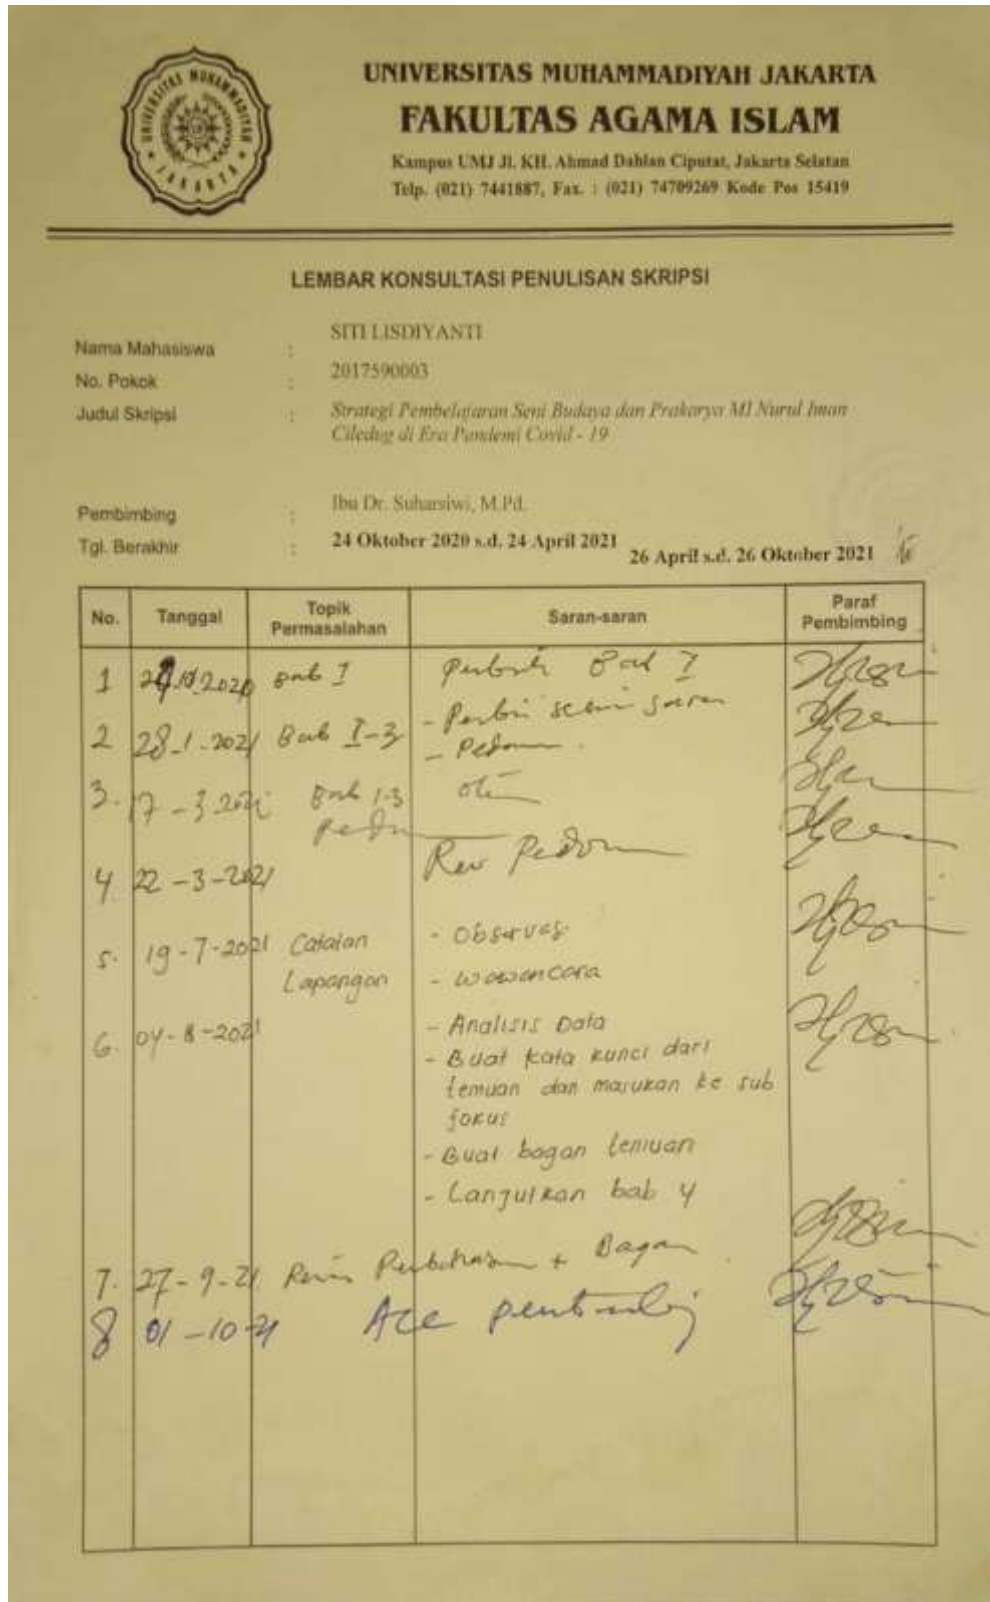 UNIVERSITAS MUHAMMADIYAH JAKARTA
UNIVERSITAS MUHAMMADIYAH JAKARTA
FAKULTAS AGAMA ISLAM
Kampus UMJ Jl. KH. Ahmad Dahlan Ciputat, Jakarta Selatan
Telp. (021) 7441887, Fax. : (021) 74709269 Kode Pos 15419
LEMBAR KONSULTASI PENULISAN SKRIPSI
Nama Mahasiswa : SITI LISDIYANTI
No. Pokok : 2017590003
Judul Skripsi : Strategi Pembelajaran Seni Budaya dan Prakarya MI Nurul Iman
Ciledug di Era Pandemi Covid - 19
Pembimbing : Ibu Dr. Suharsiwi, M.Pd.
Tgl. Berakhir : 24 Oktober 2020 s.d. 24 April 2021
26 April s.d. 26 Oktober 2021
No. Tanggal Topik Permasalahan Saran-saran Paraf Pembimbing
1 Bab I Bab I
2 28-1-2021 Bab I-3
3. 17-3-2021 Bab 1-3
4. 22-3-2021 Rev
5. 19-7-2021 Catatan - Observasi
Lapangan - wawancara
6. 04-8-2021 - Analisis Data
- Buat kata kunci dari
temuan dan masukan ke sub
fokus
- Buat bagan temuan
- Lanjutkan bab 4
7. 27-9-21 + Bagan
8 01-10-21 Acc